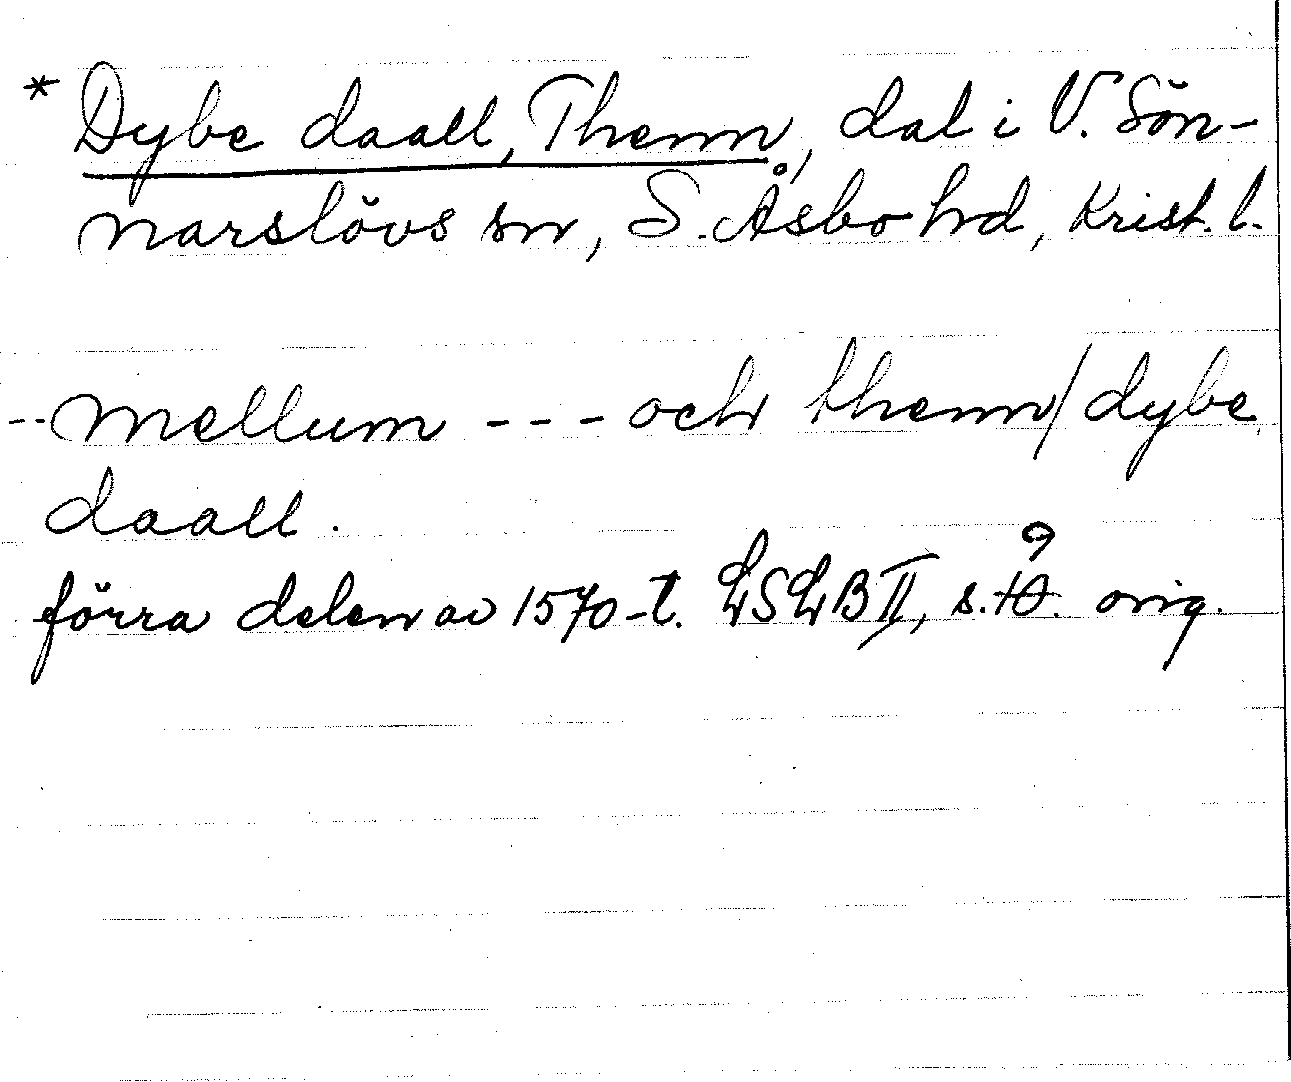 * Dybe daall, Thenn, dal i V. Sön-
narslövs sn, S. Åsbo hd, Krist. l.
-- mellum --- och thenn/dybe
daall.
förra delen av 1570-t. LSLB II, s. 9. orig.